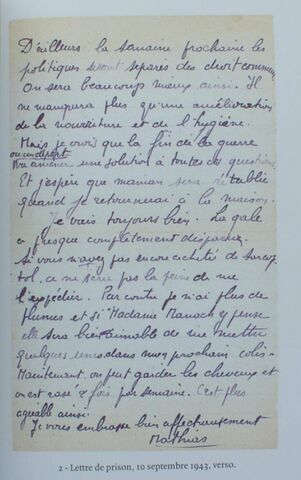 D'ailleurs la semaine prochaine les
politiques seront séparés des droit commun
On sera beaucoup mieux ainsi. Il
ne manquera plus qu'une amélioration
de la nourriture et de l'hygiène.
Mais je crois que la fin de la guerre
ou un départ
va amener une solution à toutes ces questions
Et j'espère que maman sera rétablie
quand je retournerai à la maison.
Je vais toujours bien. La gale
a presque complètement disparue.
Si vous n'avez pas encore acheté de Sarcop
tol, ce ne sera pas la peine de me
l'expédier. Par contre je n'ai plus de
plumes et si Madame Manoch y pense
elle sera bien aimable de me mettre
quelques unes dans mon prochain colis.
Maintenant on peut garder les cheveux et
on est rasé 2 fois par semaine. C'est plus
agréable ainsi.
Je vous embrasse bien affectueusement
Mathias
2 - Lettre de prison, 10 septembre 1943, verso.